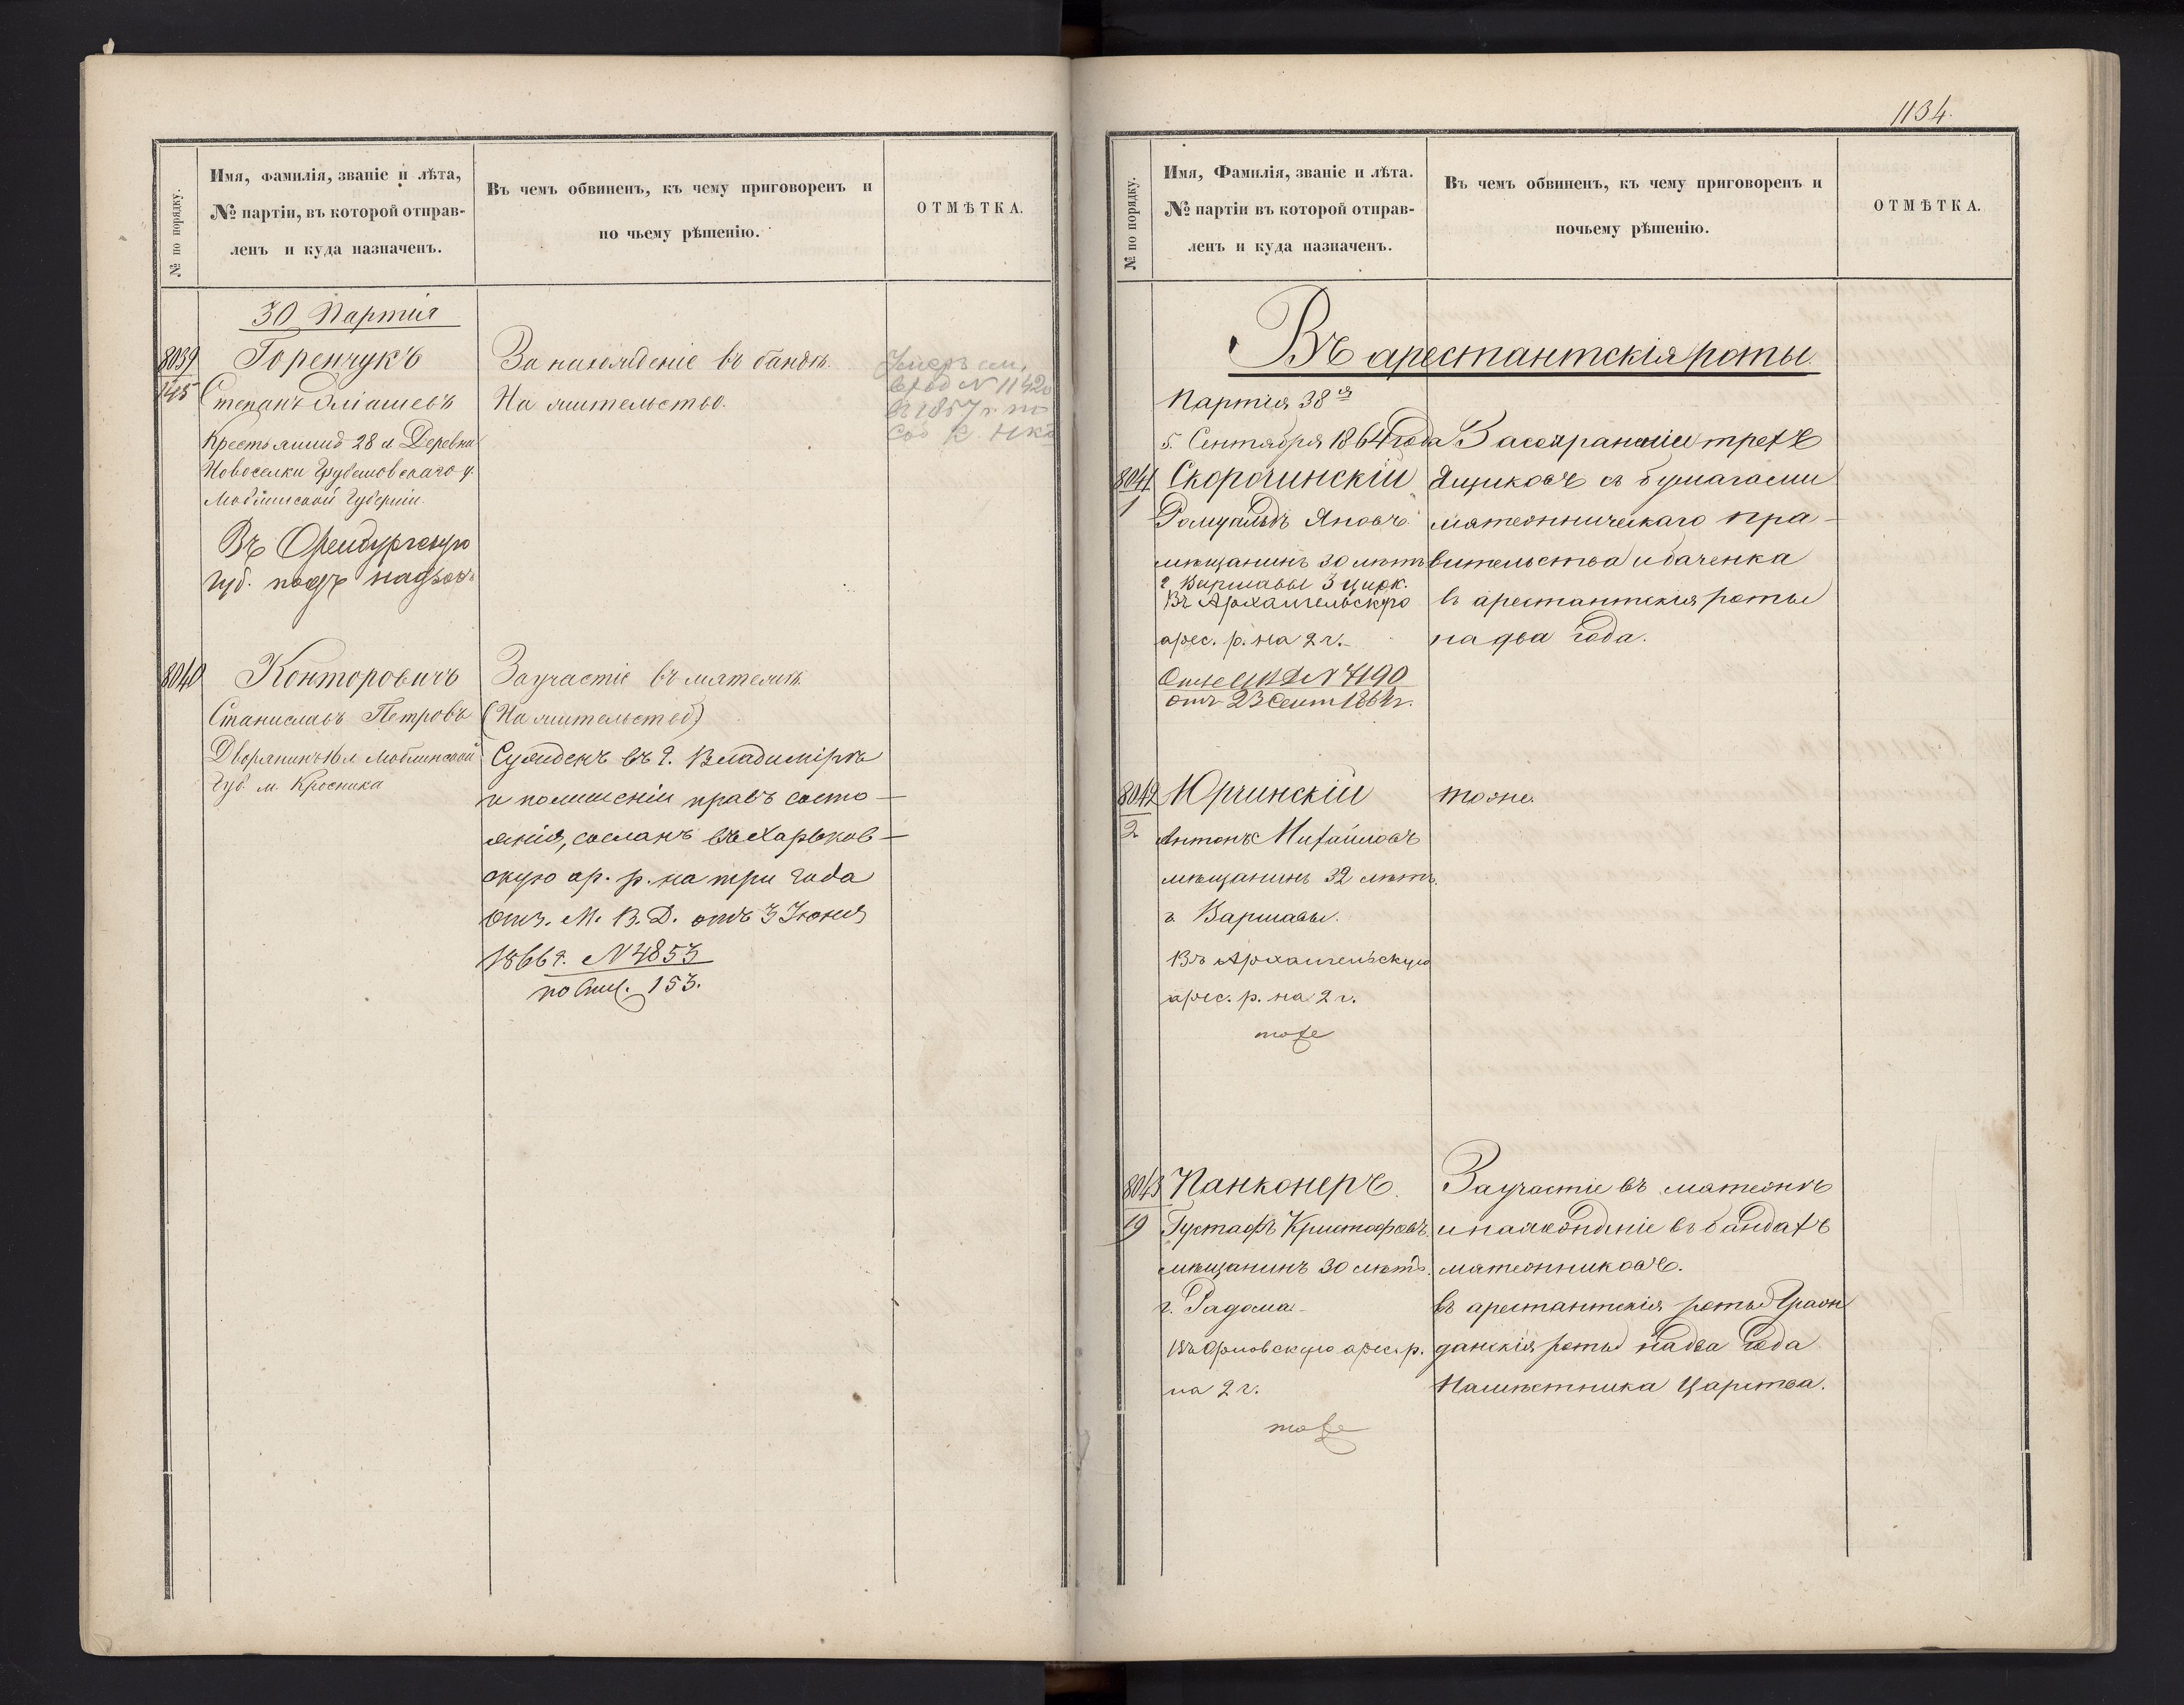 № по порядку.
Имя, фамилія, званіе и лѣта,
№ партіи, въ которой отправ-
ленъ и куда назначенъ.
Въ чемъ обвиненъ, къ чему приговоренъ и
по чьему рѣшенію.
ОТМѢТКА.
30 Партія
8039
145
Горенчукъ
Степанъ Еліашевъ
Крестьянинъ 28 л Деревни
Новоселки Грубешовскаго у.
Люблинской Губерніи.
Въ Оренбургскую
губ. подъ надзоръ
За нахожденіе въ бандѣ.
На жительство.
Умеръ см.
вход N 11420
8040
Конторовичъ
Станиславъ Петровъ
Дворянинъ 18 л Люблинской
Губ м. Красника
За участіе въ мятежѣ.
(На жительство)
Сужденъ въ г. Владимірѣ
и по лишеніи правъ состо-
янія, сосланъ въ Харьков-
скую ар. р. на три года
Отз. М. В. Д. отъ 3 Іюня
1866 г. N 4853
по Опис. 153.
1134.
№ по порядку.
Имя, Фамилія, званіе и лѣта.
№ партіи въ которой отправ-
ленъ и куда назначенъ.
Въ чемъ обвиненъ, къ чему приговоренъ и
почьему рѣшенію.
ОТМѢТКА.
Въ арестантскія роты.
Партія 38я
5 Сентября 1864 года
8041
1
Скорочинскій
Ромуальдъ Яновъ
мѣщанинъ 30 лѣтъ
г Варшавы 3 цирк.
Въ Архангельскую
арес. р. на 2 г.
N 7190
отъ 23 Сент 1864 г.
За сохраненіе трехъ
Ящиковъ съ бумагами
мятежническаго пра-
вительства и баченка
въ арестантскія роты
на два года.
8042
2
Юрчинскій
Антонъ Михайловъ
мѣщанинъ 32 лѣтъ.
г. Варшавы.
Въ Архангельскую
арес. р. на 2 г.
тоже
тоже.
8043
19
Панконеръ.
Густафъ Кристофовъ
мѣщанинъ 30 лѣтъ.
г. Радома
Въ Орловскую арес. р.
на 2 г.
тоже
За участіе въ мятежѣ
и нахожденіе въ бандахъ
мятежниковъ.
въ арестантскія роты Граж
данскія роты на два года
Намѣстника Царства.